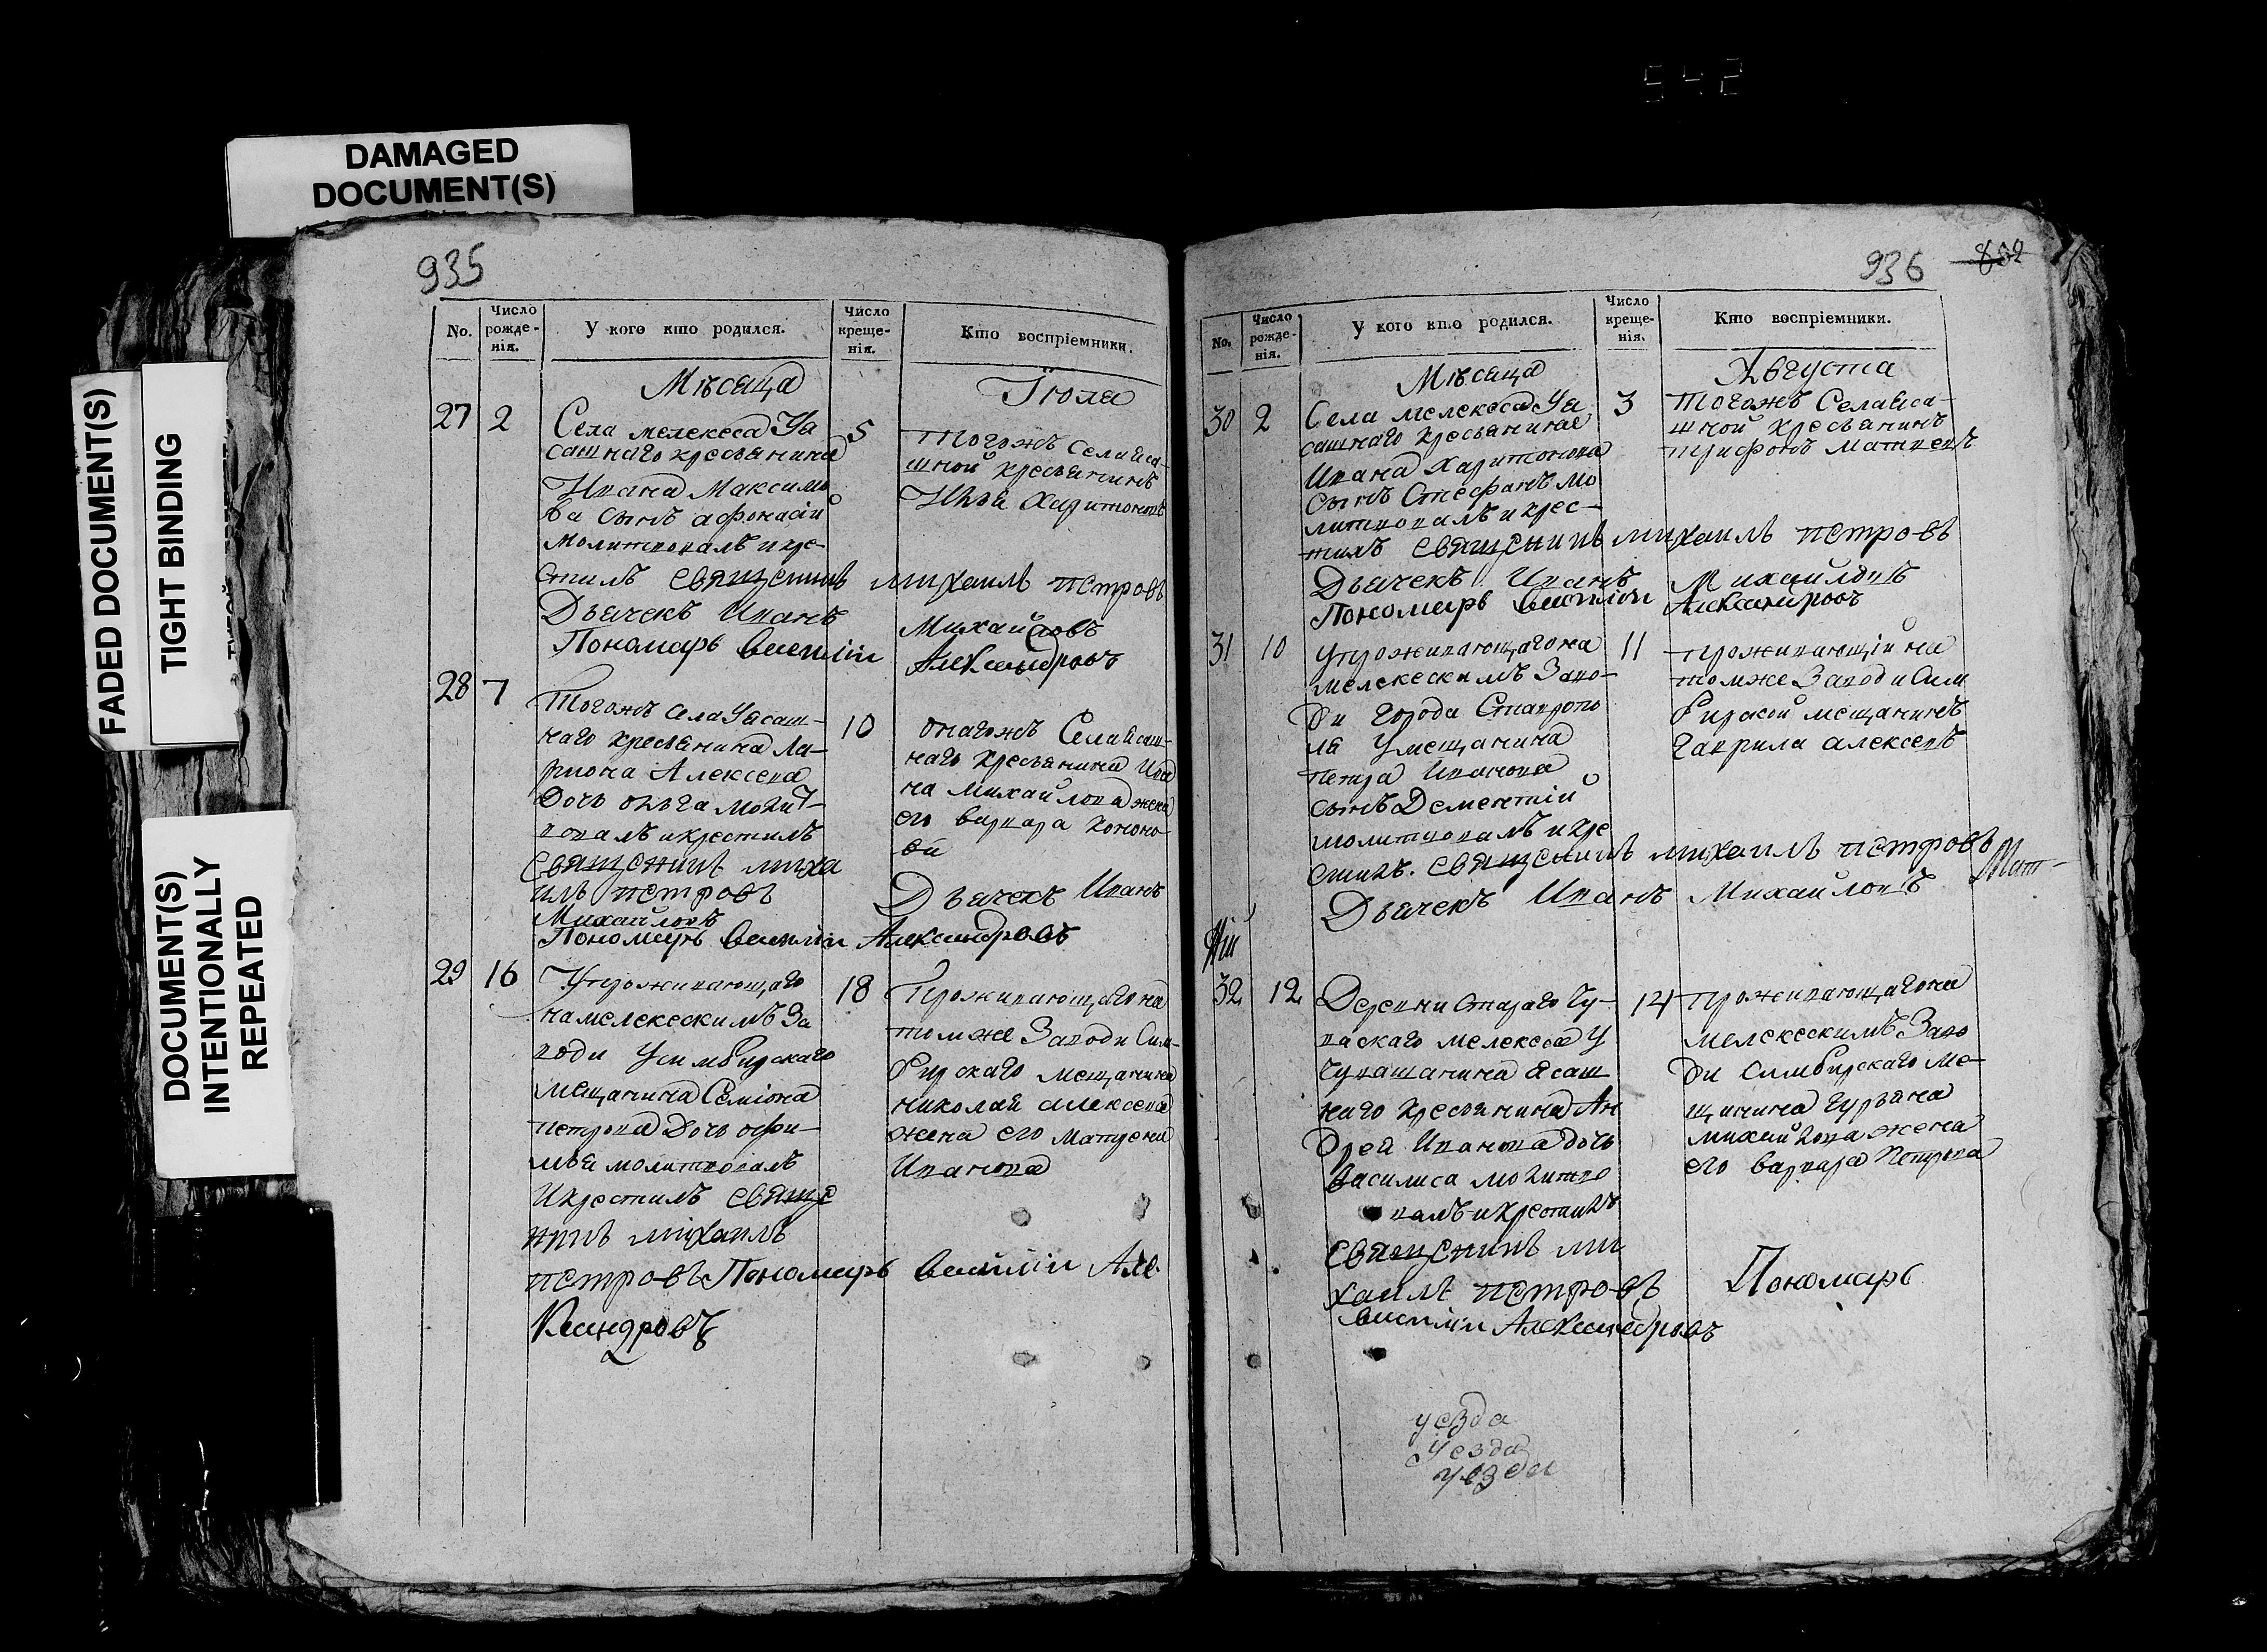 542
DAMAGED
DOCUMENT(S)
FADED DOCUMENT(S)
TIGHT BINDING
DOCUMENT(S)
INTENTIONALLY
REPEATED
935
No.
Число
рожде-
нія.
У кого кто родился.
Число
креще-
нія.
Кто воспріемники.
Мѣсяца
Іюля
27
2
Села мелекеса Уя
сашнаго кресьянина
Ивана Максимо
ва сынъ афонасій
молитвовалъ икре-
стилъ священникъ михаилъ петровъ
Дьячекъ Иванъ
Пономарь василіи
5
тогожъ селаяса-
шной кресьянинъ
Илья Харитоновъ
Михайловъ
Александровъ
28
7
Тогожъ села Уясаш-
наго кресьянина Ла-
риона Алексева
дочь ольга молит-
вовалъ икрестилъ
священникъ миха
илъ петровъ
Михайловъ
Пономарь василіи Александровъ
10
онагожъ Села ясаш-
наго кресьянина Ива
на михайлова жена
его варваракононо-
ва
Дьячекъ Иванъ
29
16
Упроживающаго
намелекескимъ За
води Усимбирскаго
мещанина Семіона
петрова дочь офи-
мья молитвовалъ
Икрестилъ свяще
нникъ михаилъ
петровъ Пономарь василіи Але
Ксандровъ
18
Проживающагона
томже Заводи Сим-
бирскаго мещанина
николая алексева
жена его матрена
Иванова
936
802
No.
Число
рожде-
нія.
У кого кто родился.
Число
креще-
нія.
Кто воспріемники.
Мѣсяца
Августа
30
2
Села мелекеса Уя
сашнаго кресьянина
Ивана Харитонова
сынъ Стефанъ мо
литвовалъ икрес-
тилъ священникъ михаилъ петровъ
Дьячекъ Иванъ Михайловъ
Пономарь василіи Александровъ
3
тогожъ Селаяса-
шной кресьянинъ
трифонъ матвевъ
31
10
Упроживающагона
мелекескимъ Заво-
ди города Ставропо
ля Умещанина
петра Иванова
сынъ Дементій
молитвовалъ икре
стилъ. священникъ михаилъ петровъ
Дьячекъ Иванъ Михайловъ
11
проживающій на
томже Заводи Сим
бирской мещанинъ
гаврила алексевъ
32
12
Деревни стараго Чу-
вакаго мелекеса У
Чувашанина ясаш
наго кресьянина Ан
дрея Иванова дочь
василиса молитво
валъ икрестилъ
священникъ ми
хаилъ петровъ
Пономарь
василіи Александровъ
14
проживающагона
мелекескимъ Заво
ди Симбирскаго ме-
щанина гурьяна
михайлова жена
его варвара Петрова
уезда
уезда
уезди